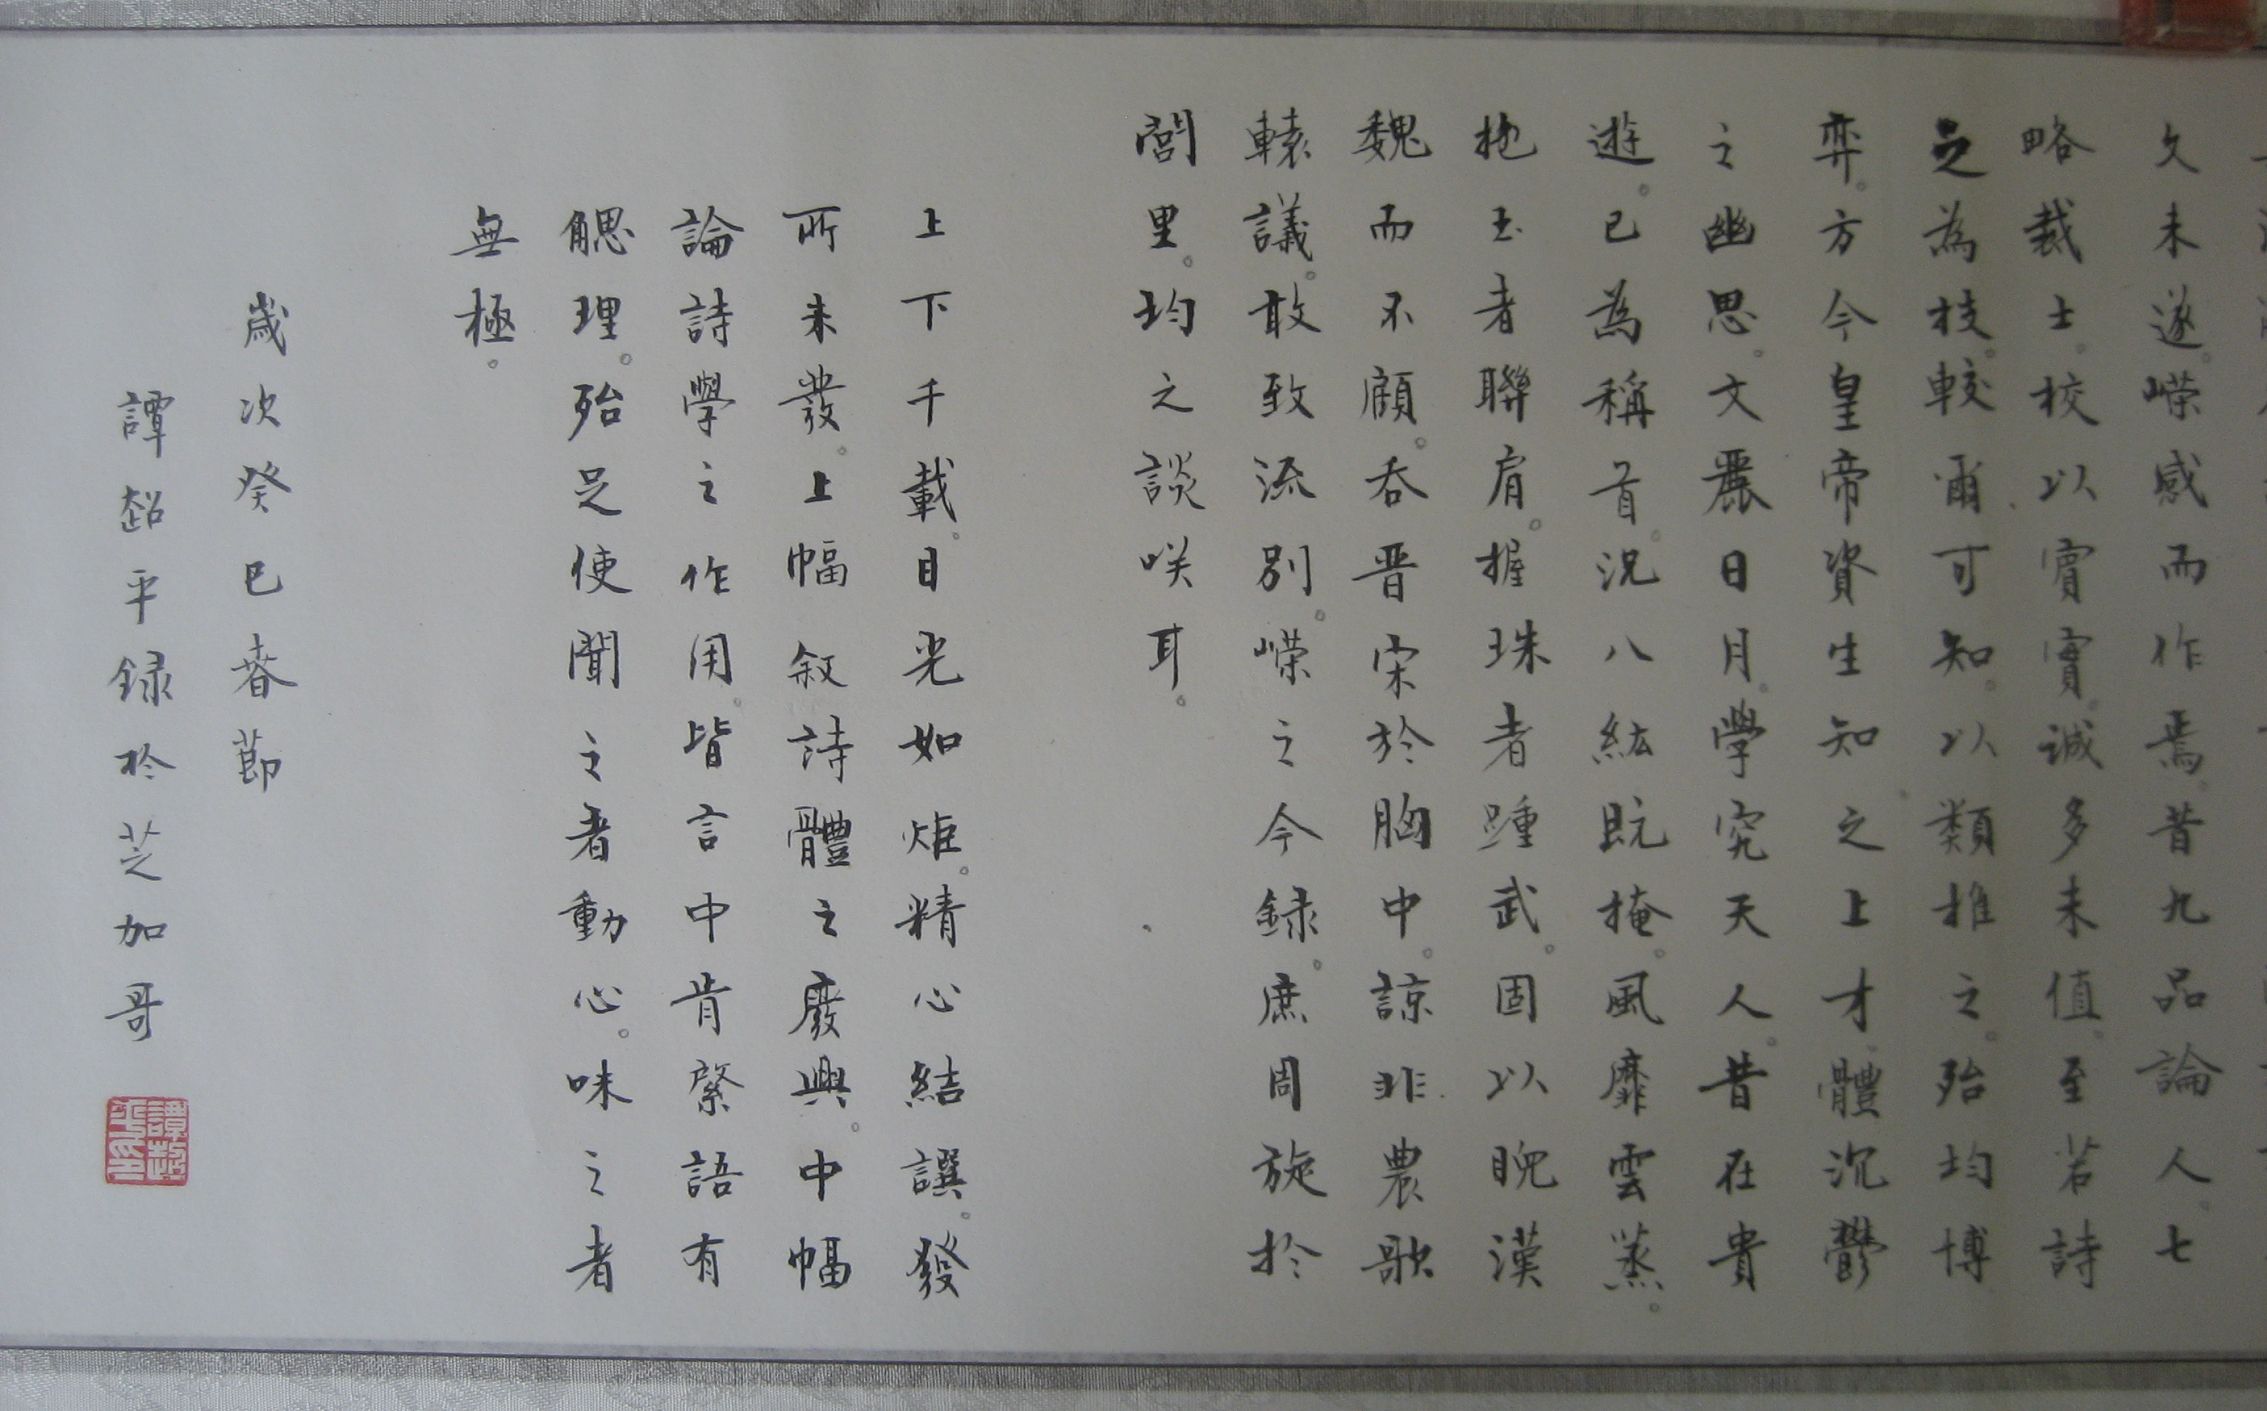 文未遂。嶸感而作焉。昔九品論人。七
略裁士。校以賓實。誠多未值。至若詩
之為技。較爾可知。以類推之。殆均博
弈。方今皇帝資生知之上才。體沉鬱
之幽思。文麗日月。學究天人。昔在貴
遊。已為稱首。況八紘既掩。風靡雲蒸。
抱玉者聯肩。握珠者踵武。固以睨漢
魏而不顧。吞晉宋於胸中。諒非農歌
轅議。敢致流別。嶸之今録。庶周旋於
閭里。均之談咲耳。
上下千載。目光如炬。精心結譔。發
所未發。上幅敘詩體之廢興。中幅
論詩學之作用。皆言中肯綮語有
䚡理。殆足使聞之者動心。味之者
無極。
歲次癸巳春節
譚超平録於芝加哥
譚超平印